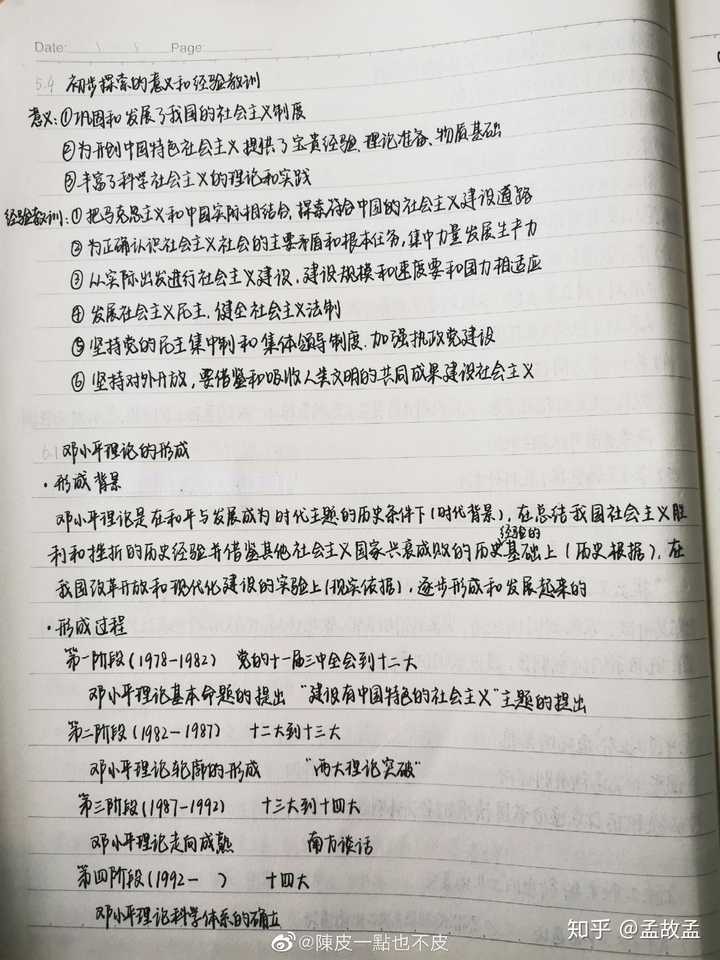 Date: \ \ Page:
5.4 初步探索的意义和经验教训
意义:①巩固和发展了我国的社会主义制度
②为开创中国特色社会主义提供了宝贵经验、理论准备、物质基础
③丰富了科学社会主义的理论和实践
经验教训:①把马克思主义和中国实际相结合,探索符合中国的社会主义建设道路
②为正确认识社会主义社会的主要矛盾和根本任务,集中力量发展生产力
③从实际出发进行社会主义建设,建设规模和速度要和国力相适应
④发展社会主义民主,健全社会主义法制
⑤坚持党的民主集中制和集体领导制度,加强执政党建设
⑥坚持对外开放,要借鉴和吸收人类文明的共同成果建设社会主义
6.1 邓小平理论的形成
·形成背景
邓小平理论是在和平与发展成为时代主题的历史条件下(时代背景),在总结我国社会主义胜
利和挫折的历史经验并借鉴其他社会主义国家兴衰成败的历史经验的基础上(历史根据),在
我国改革开放和现代化建设的实验上(现实依据),逐步形成和发展起来的
·形成过程
第一阶段(1978-1982) 党的十一届三中全会到十二大
邓小平理论基本命题的提出 "建设有中国特色的社会主义"主题的提出
第二阶段(1982-1987) 十二大到十三大
邓小平理论轮廓的形成 "两大理论突破"
第三阶段(1987-1992) 十三大到十四大
邓小平理论走向成熟 南方谈话
第四阶段(1992- ) 十四大
邓小平理论科学体系的确立
@陳皮一點也不皮
知乎 @孟故孟